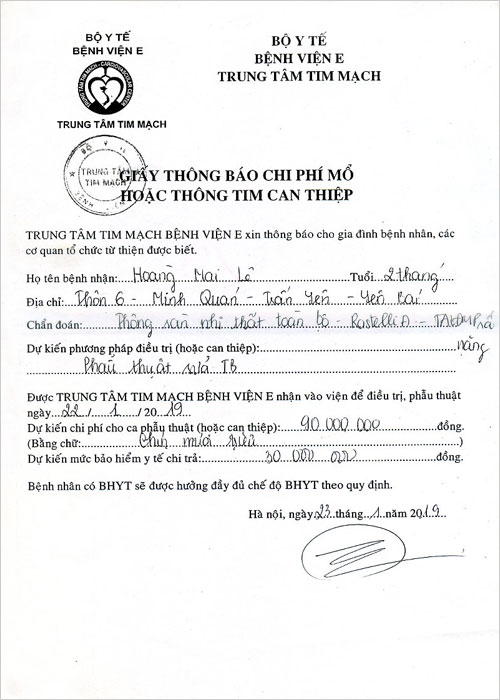 BỘ Y TẾ
BỆNH VIỆN E
TRUNG TÂM TIM MẠCH
BỘ Y TẾ
BỆNH VIỆN E
TRUNG TÂM TIM MẠCH
TRUNG TÂM
TIM MẠCH
GIẤY THÔNG BÁO CHI PHÍ MỔ
HOẶC THÔNG TIM CAN THIỆP
TRUNG TÂM TIM MẠCH BỆNH VIỆN E xin thông báo cho gia đình bệnh nhân, các
cơ quan tổ chức từ thiện được biết.
Họ tên bệnh nhân: Hoàng Mai Lê Tuổi: 2 tháng
Địa chỉ: Thôn 6 - Minh Quán - Trấn Yên - Yên Bái
Chẩn đoán: Thông sàn nhĩ thất toàn bộ - Rastelli A - TALĐMP rất
nặng
Dự kiến phương pháp điều trị (hoặc can thiệp):
Phẫu thuật vá TB
Được TRUNG TÂM TIM MẠCH BỆNH VIỆN E nhận vào viện để điều trị, phẫu thuật
ngày 22 / 1 / 2019
Dự kiến chi phí cho ca phẫu thuật (hoặc can thiệp): 90.000.000 đồng.
(Bằng chữ: Chín mươi triệu )
Dự kiến mức bảo hiểm y tế chi trả: 30 000 000 đồng.
Bệnh nhân có BHYT sẽ được hưởng đầy đủ chế độ BHYT theo quy định.
Hà nội, ngày 23 tháng 1 năm 2019